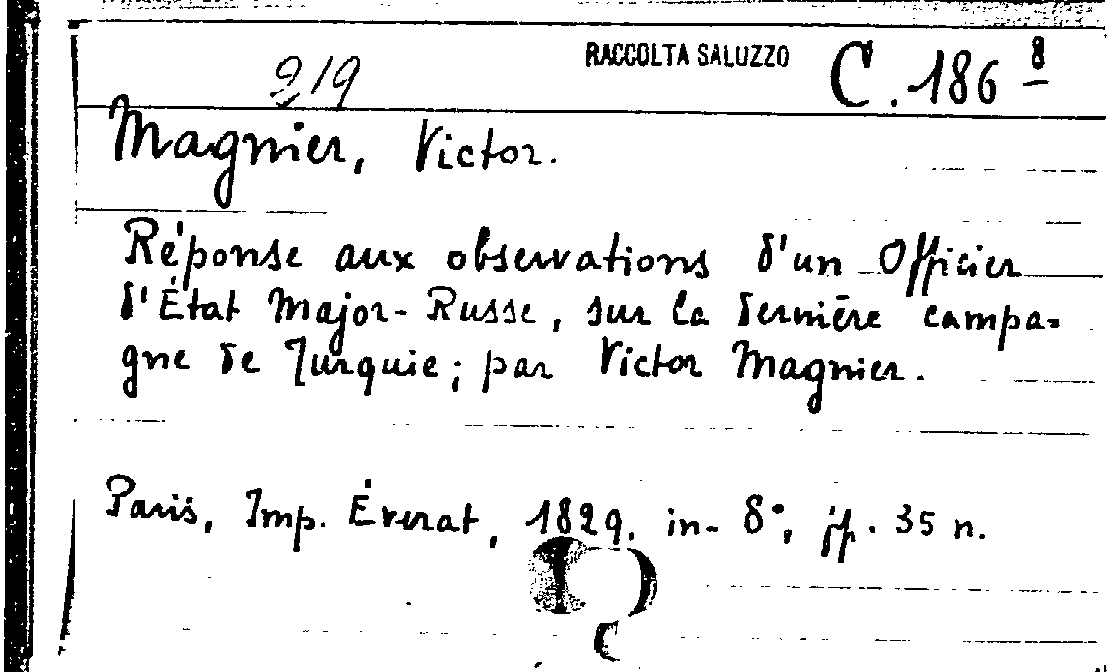 219 RACCOLTA SALUZZO C. 186 8
Magnier, Victor.
Réponse aux observations d'un Officier
d'État Major-Russe, sur la dernière campa=
gne de Turquie; par Victor Magnier.
Paris, Imp. Éverat, 1829. in-8°, pp. 35 n.